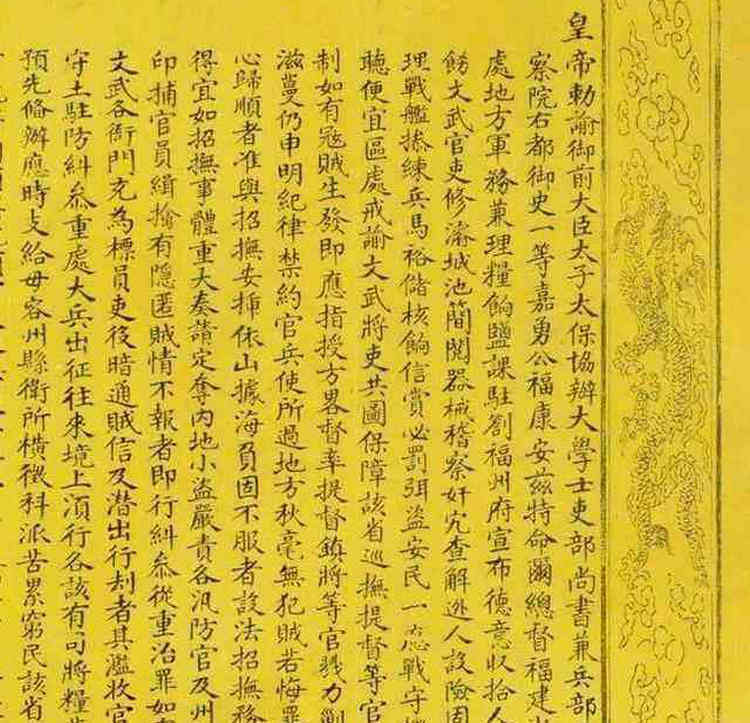 皇帝勅諭御前大臣太子太保協辦大學士吏部尚書兼兵部
察院右都御史一等嘉勇公福康安茲特命爾總督福建
處地方軍務兼理糧餉鹽課駐劄福州府宣布德意收拾人
飭文武官吏修濬城池簡閱器械稽察奸宄查解逃人設險固
理戰艦操練兵馬裕儲核餉信賞必罰弭盜安民一應戰守
聽便宜區處戒諭文武將吏共圖保障該省巡撫提督等官
制如有寇賊生發即應指授方畧督率提督鎮將等官戮力剿
滋蔓仍申明紀律禁約官兵使所過地方秋毫無犯賊若悔罪
心歸順者准與招撫安插依山據海負固不服者設法招撫務
得宜如招撫事體重大奏請定奪內地小盜嚴責各汛防官及州
印捕官員緝擒有隱匿賊情不報者即行糾叅從重治罪如有
文武各衙門充為標員吏役暗通賊信及潛出行刦者其濫收官
守土駐防糾叅重處大兵出征往來境上須行各該有司將糧
預先偹辦應時支給毋容州縣衛所橫徵科派苦累窮民該省